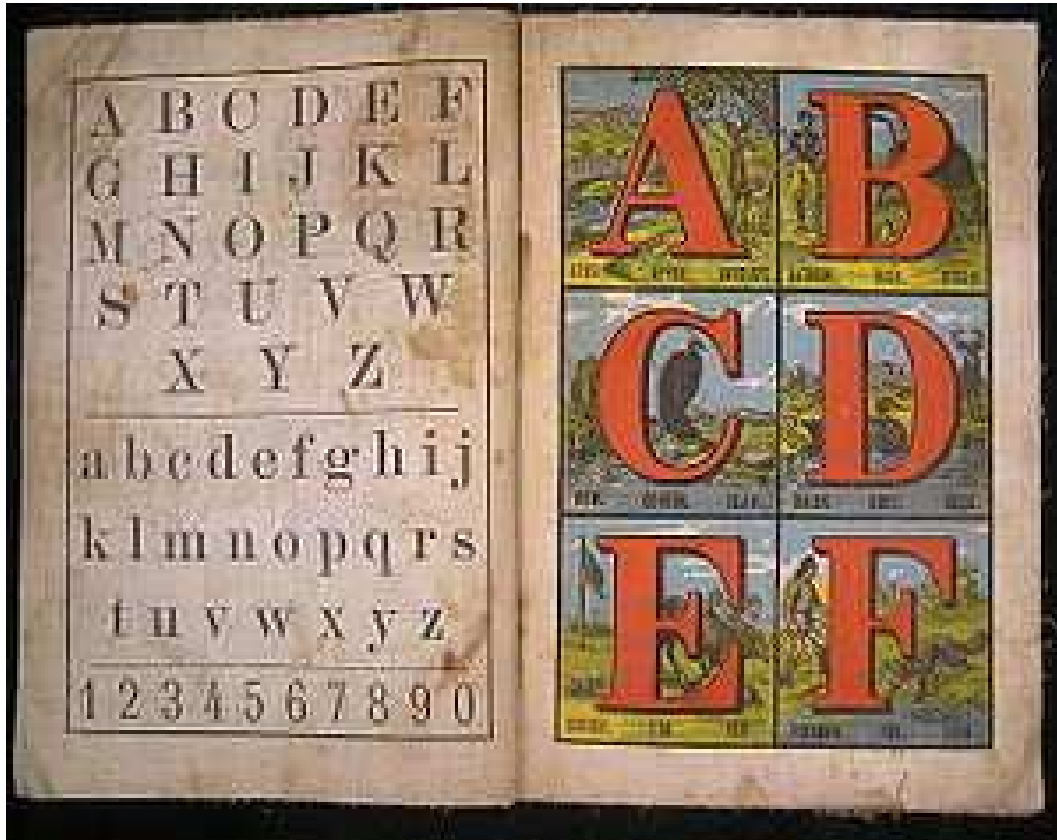 A B C D E F
G H I J K L
M N O P Q R
S T U V W
X Y Z
a b c d e f g h i j
k l m n o p q r s
t u v w x y z
1 2 3 4 5 6 7 8 9 0
A B
C D
E F